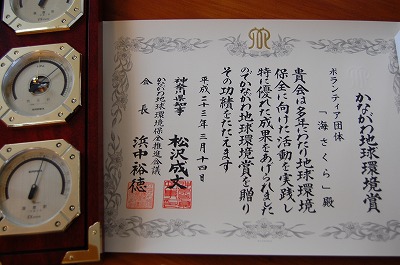 かながわ地球環境賞
ボランティア団体
「海さくら」殿
貴会は多年にわたり地球環境
保全に向けた活動を実践し
特に優れた成果をあげられました
のでかながわ地球環境賞を贈り
その功績をたたえます
平成二十三年三月十四日
神奈川県知事 松沢成文
かながわ地球環境保全推進会議
会長 浜中裕徳